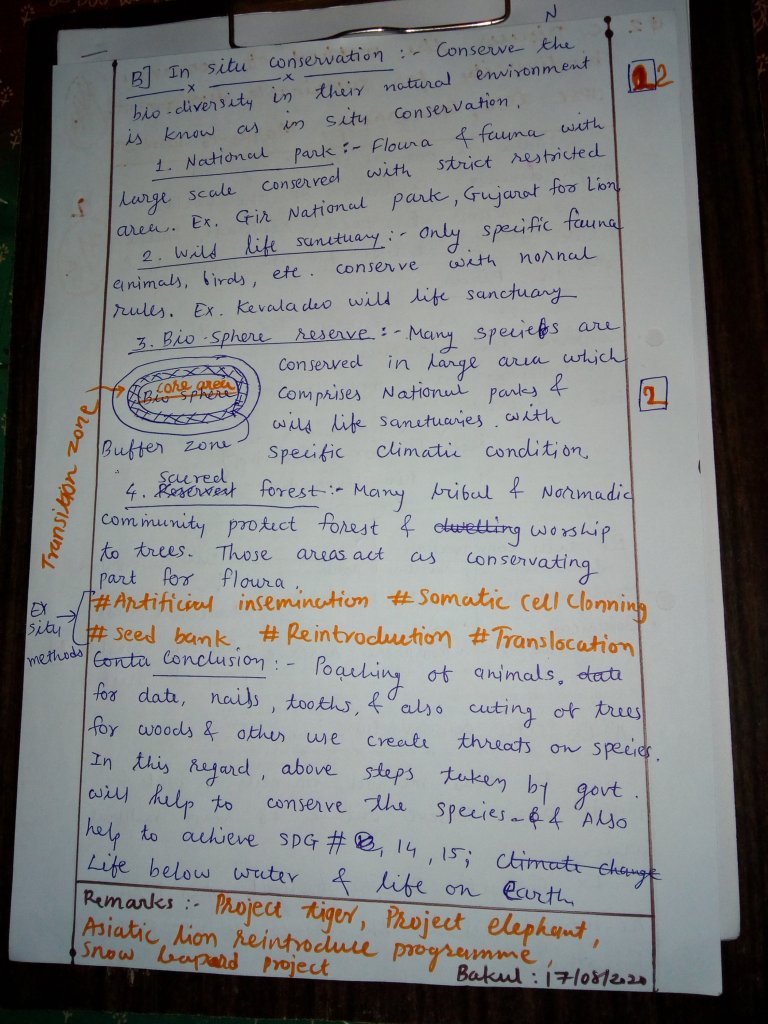 N
B] In situ conservation :- Conserve the
bio-diversity in their natural environment
is know as in situ conservation.
1. National park :- Floura & fauna with
large scale conserved with strict restricted
area. Ex. Gir National park, Gujarat for Lion
2. Wild life sanctuary :- Only specific fauna
animals, birds, etc. conserve with normal
rules. Ex. Kevaladeo wild life sanctuary
3. Bio-sphere reserve :- Many species are
conserved in large area which
comprises National parks &
wild life sanctuaries. with
specific climatic condition.
core area
Bio sphere
Buffer zone
Transition zone
4. Reserved sacred forest :- Many tribal & Normadic
community protect forest & dwelling worship
to trees. Those areas act as conservating
part for floura.
Ex situ methods
#Artificial insemination #Somatic cell Clonning
#seed bank #Reintroduction #Translocation
Contu Conclusion :- Poaching of animals. date
for date, nails, tooths, & also cuting of trees
for woods & others use create threats on species.
In this regard, above steps taken by govt.
will help to conserve the species. & Also
help to achieve SDG # 14, 15; climate change
Life below water & life on Earth
2 2
2
Remarks :- Project tiger, Project elephant,
Asiatic lion reintroduce programme,
Snow leapard project
Bakul : 17/08/2020